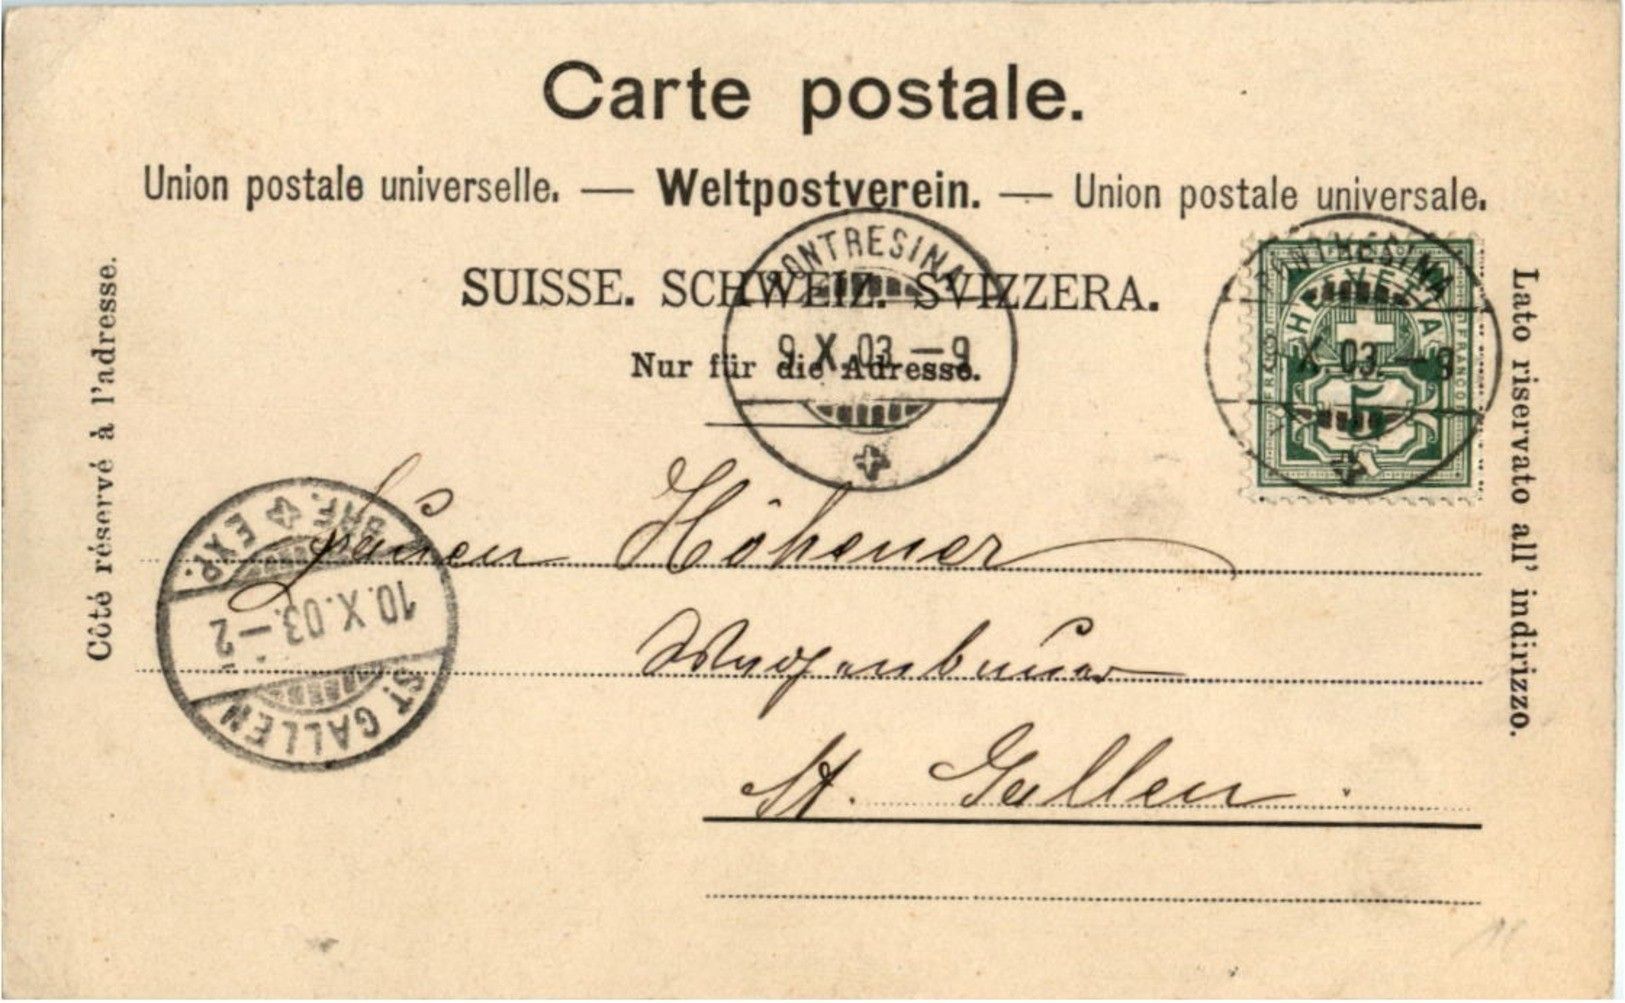 Carte postale.
Union postale universelle. — Weltpostverein. — Union postale universale.
SUISSE. SCHWEIZ. SVIZZERA.
Nur für die Adresse.
Côté réservé à l'adresse.
Lato riservato all' indirizzo.
PONTRESINA
9. X. 03. — 9
PONTRESINA
9. X. 03. — 9
HELVETIA
FRANCO
5
BRF. EXP.
10. X. 03. — 2
ST. GALLEN
Höhener
St. Gallen.